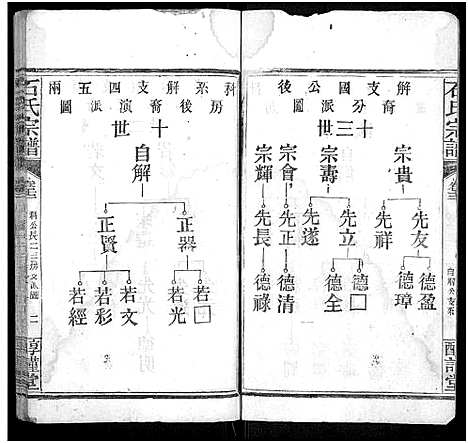 石氏宗譜
解支國公後
裔分派圖
十三世
宗貴
宗壽
宗會
宗輝
先友
先祥
先立
先遂
先正
先長
德盈
德璋
德□
德全
德清
德祿
科系解支四五兩
房後裔演派圖
十世
自解
正器
正賢
若□
若光
若文
若彩
若經
石氏宗譜
二
惇謹堂